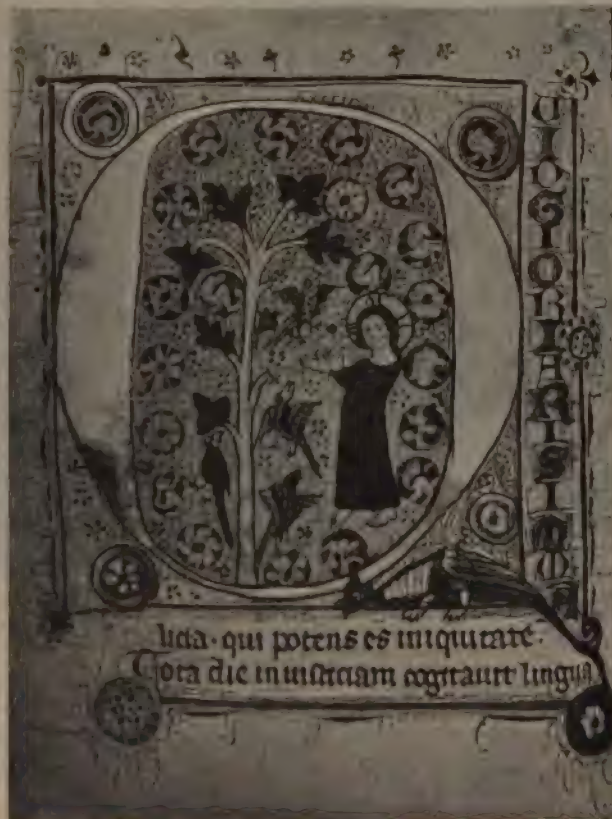 QUID GLORIARIS IN MA
licia · qui potens es iniquitate ·
Tota die iniusticiam cogitauit lingua